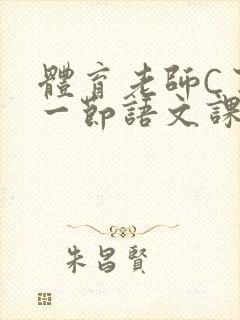 體育老師C
一節語文課
朱昌賢